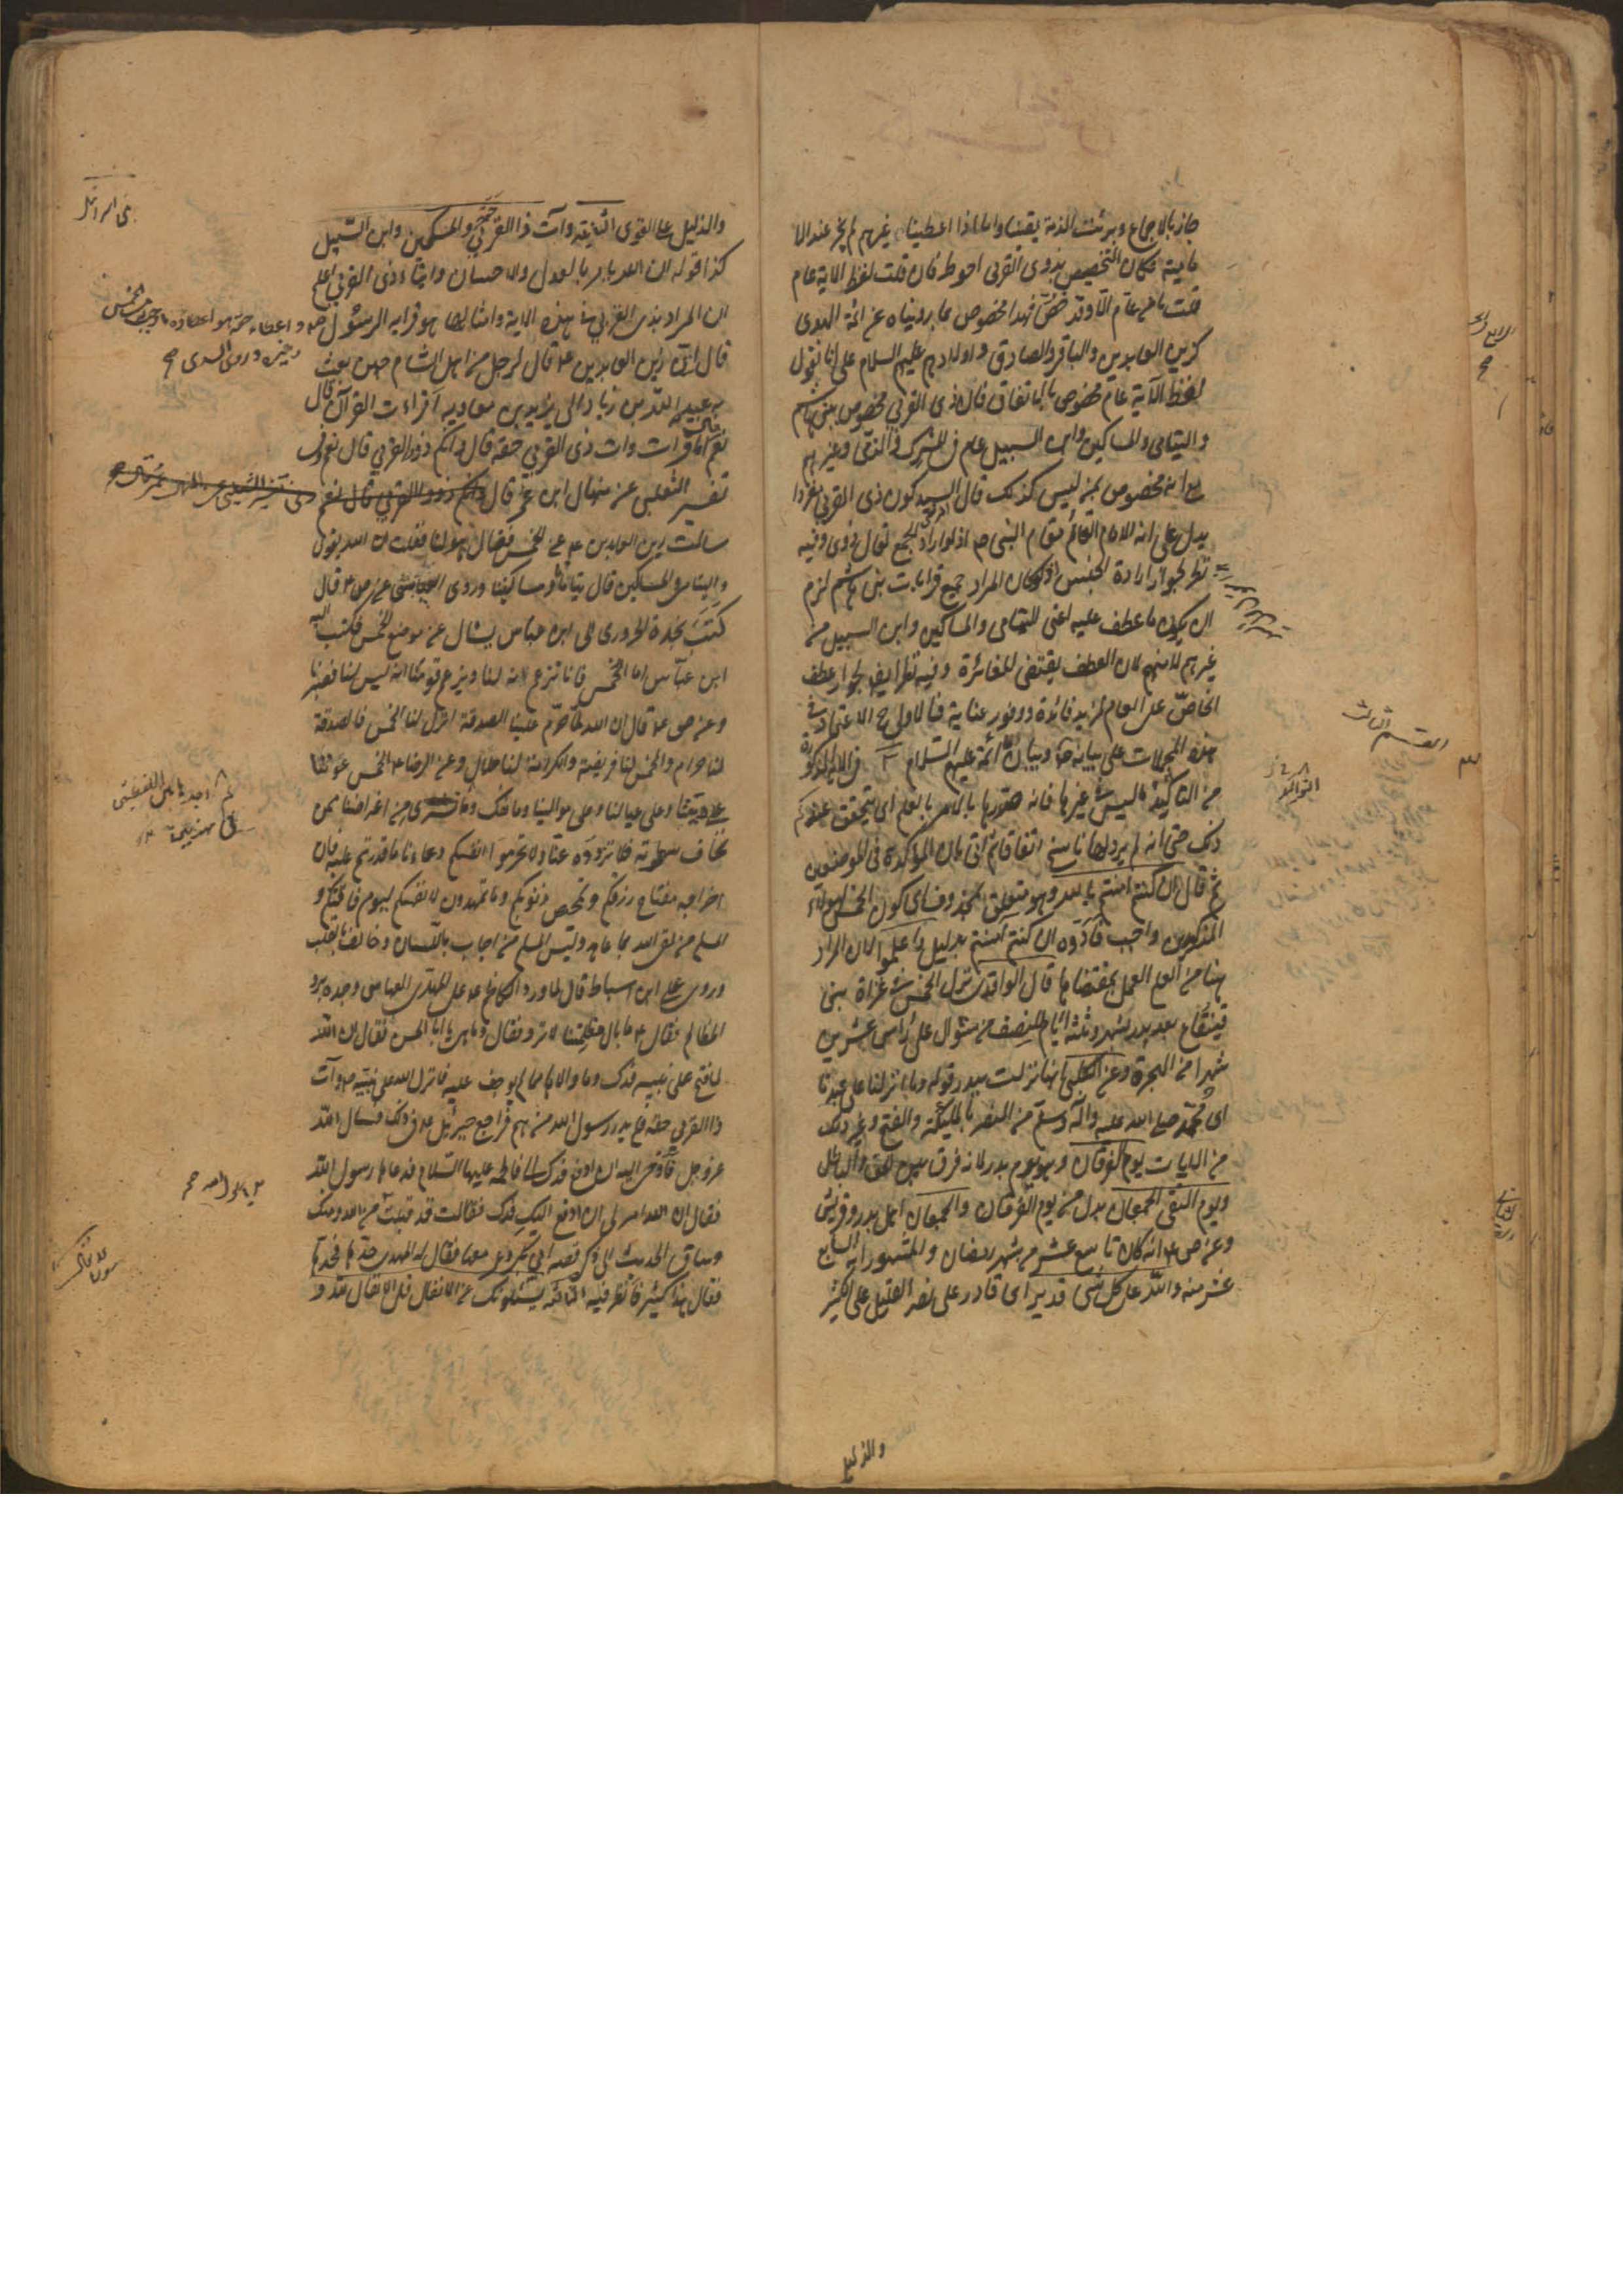 جاز بالاجماع وبرئت الذمة يقينا واما اذا اعطينا غيرهم لم يجز عند الاما
مامية فكان التخصيص بذوى القربى احوط فان قلت لفظ الاية عام
قلت ما من عام الا وقد خص فهذا مخصوص بما رويناه عن ائمة الهدى
كزين العابدين والباقر والصادق واولادهم عليهم السلام على انا نقول
لفظ الآية عام مخصوص بالاتفاق فان ذى القربى مخصوص ببنى هاشم
واليتامى والمساكين وابن السبيل عام فى المشرك والذمى وغيرهم
مع انه مخصوص بمن ليس كذلك قال السيد كون ذى القربى مفردا
يدل على انه الامام القائم مقام النبى ص اذ لو اراد الجمع لقال ذوى وفيه
نظر لجواز ارادة الجنس لو كان المراد جميع قرابات بنى هاشم لزم
ان يكون ما عطف عليه اعنى اليتامى والمساكين وابن السبيل من
غيرهم لا منهم لان العطف يقتضى المغائرة وفيه نظر ايضا لجواز عطف
الخاص على العام لمزيد فائدة ووفور عناية فالاولى ح الاعتماد فى
هذه المجملات على بيانه ص وبيان الائمة عليهم السلام فى الاية المذكورة
من التاكيد ما ليس فى غيرها فانه صدرها بالامر بالعلم اى يتحقق عندكم
ذلك حتى انه لم يرد لها ناسخ اتفاقا ثم اتى بان المؤكدة فى الموضعين
ثم قال ان كنتم امنتم بالله وهو متعلق بمحذوف اى كون الخمس لهؤلاء
المذكورين واجب فادوه ان كنتم امنتم بدليل واعلموا لان المراد
هنا من العلم العمل بمقتضاها قال الواقدى نزل الخمس فى غزاة بنى
قينقاع بعد بدر بشهر وثلثة ايام للنصف من شوال على راس عشرين
شهرا من الهجرة وعن الكلبى انها نزلت ببدر قوله وما انزلنا على عبدنا
اى محمد صلى الله عليه وآله وسلم من النصر بالملئكة والفتح وغير ذلك
من الايات يوم الفرقان وهو يوم بدر لانه فرق بين الحق والباطل
ويوم التقى الجمعان بدل من يوم الفرقان والجمعان اهل بدر وقريش
وعن ص ع انه كان تاسع عشر من شهر رمضان والمشهور انه السابع
عشر منه والله على كل شئ قدير اى قادر على نصر القليل على الكثير
والدليل
القسم الثالث
والدليل على القوى الثانية وآت ذا القربى حقه والمسكين وابن السبيل
كذا قوله ان الله يامر بالعدل والاحسان وايتاء ذى القربى اعلم
ان المراد بذى القربى فى هذه الاية وامثالها هو قرابه الرسول ص واعطاء حقه هو اعطاؤه ما وجب من الخمس
وغيره وروى السدى صح
قال ان زين العابدين ع قال لرجل من اهل الشام حين بعث
به عبيد الله بن زياد الى يزيد بن معاوية اقرأت القرآن قال
نعم قال اما قرات وات ذى القربى حقه قال وانكم ذوو القربى قال نعم وفى
تفسير الثعلبى عن منهال ابن عمر قال وانكم ذوو القربى قال نعم
سالت زين العابدين ع عن الخمس فقال هو لنا فقلت ان الله يقول
واليتامى والمساكين قال يتامانا ومساكيننا وروى العياشى عن ص ع قال
كتب نجدة الحرورى الى ابن عباس يسال عن موضع الخمس فكتب اليه
ابن عباس اما الخمس فانا نزعم انه لنا ويزعم قومنا انه ليس لنا فصبرنا
وعن ص ع قال ان الله لما حرم علينا الصدقة انزل لنا الخمس فالصدقة
لنا حرام والخمس لنا فريضة والكرامة لنا حلال وعن الرضا ع الخمس عوننا
على ديننا وعلى عيالنا وعلى موالينا وما نفك وما نشترى من اعراضنا ممن
نخاف سطوته فلا تزووه عنا ولا تحرموا انفسكم دعاءنا ما قدرتم عليه فان
اخراجه مفتاح رزقكم وتمحيص ذنوبكم وما تمهدون لانفسكم ليوم فاقتكم و
المسلم من يفى لله بما عاهد وليس المسلم من اجاب باللسان وخالف بالقلب
وروى على ابن اسباط قال لما ورد الكاظم ع على المهدى العباسى وجده يرد
المظالم فقال ع ما بال مظلمتنا لا ترد فقال وما هى يا ابا الحسن فقال ان الله
لما فتح على نبيه فدك وما والاها مما لم يوجف عليه فانزل الله على نبيه ص وآت
ذا القربى حقه فلم يدر رسول الله من هم فراجع جبرئيل ع فى ذلك فسال الله
عز وجل فاوحى اليه ان ادفع فدك الى فاطمة عليها السلام فدعاها رسول الله
فقال ان الله امرنى ان ادفع اليك فدك فقالت قد قبلت من الله ومنك
وساق الحديث الى ذكر قصة ابى بكر وعمر معها فقال له المهدى حدها فحدها
فقال هذا كثير فانظر فيه الثالثة يسئلونك عن الانفال قل الانفال لله و